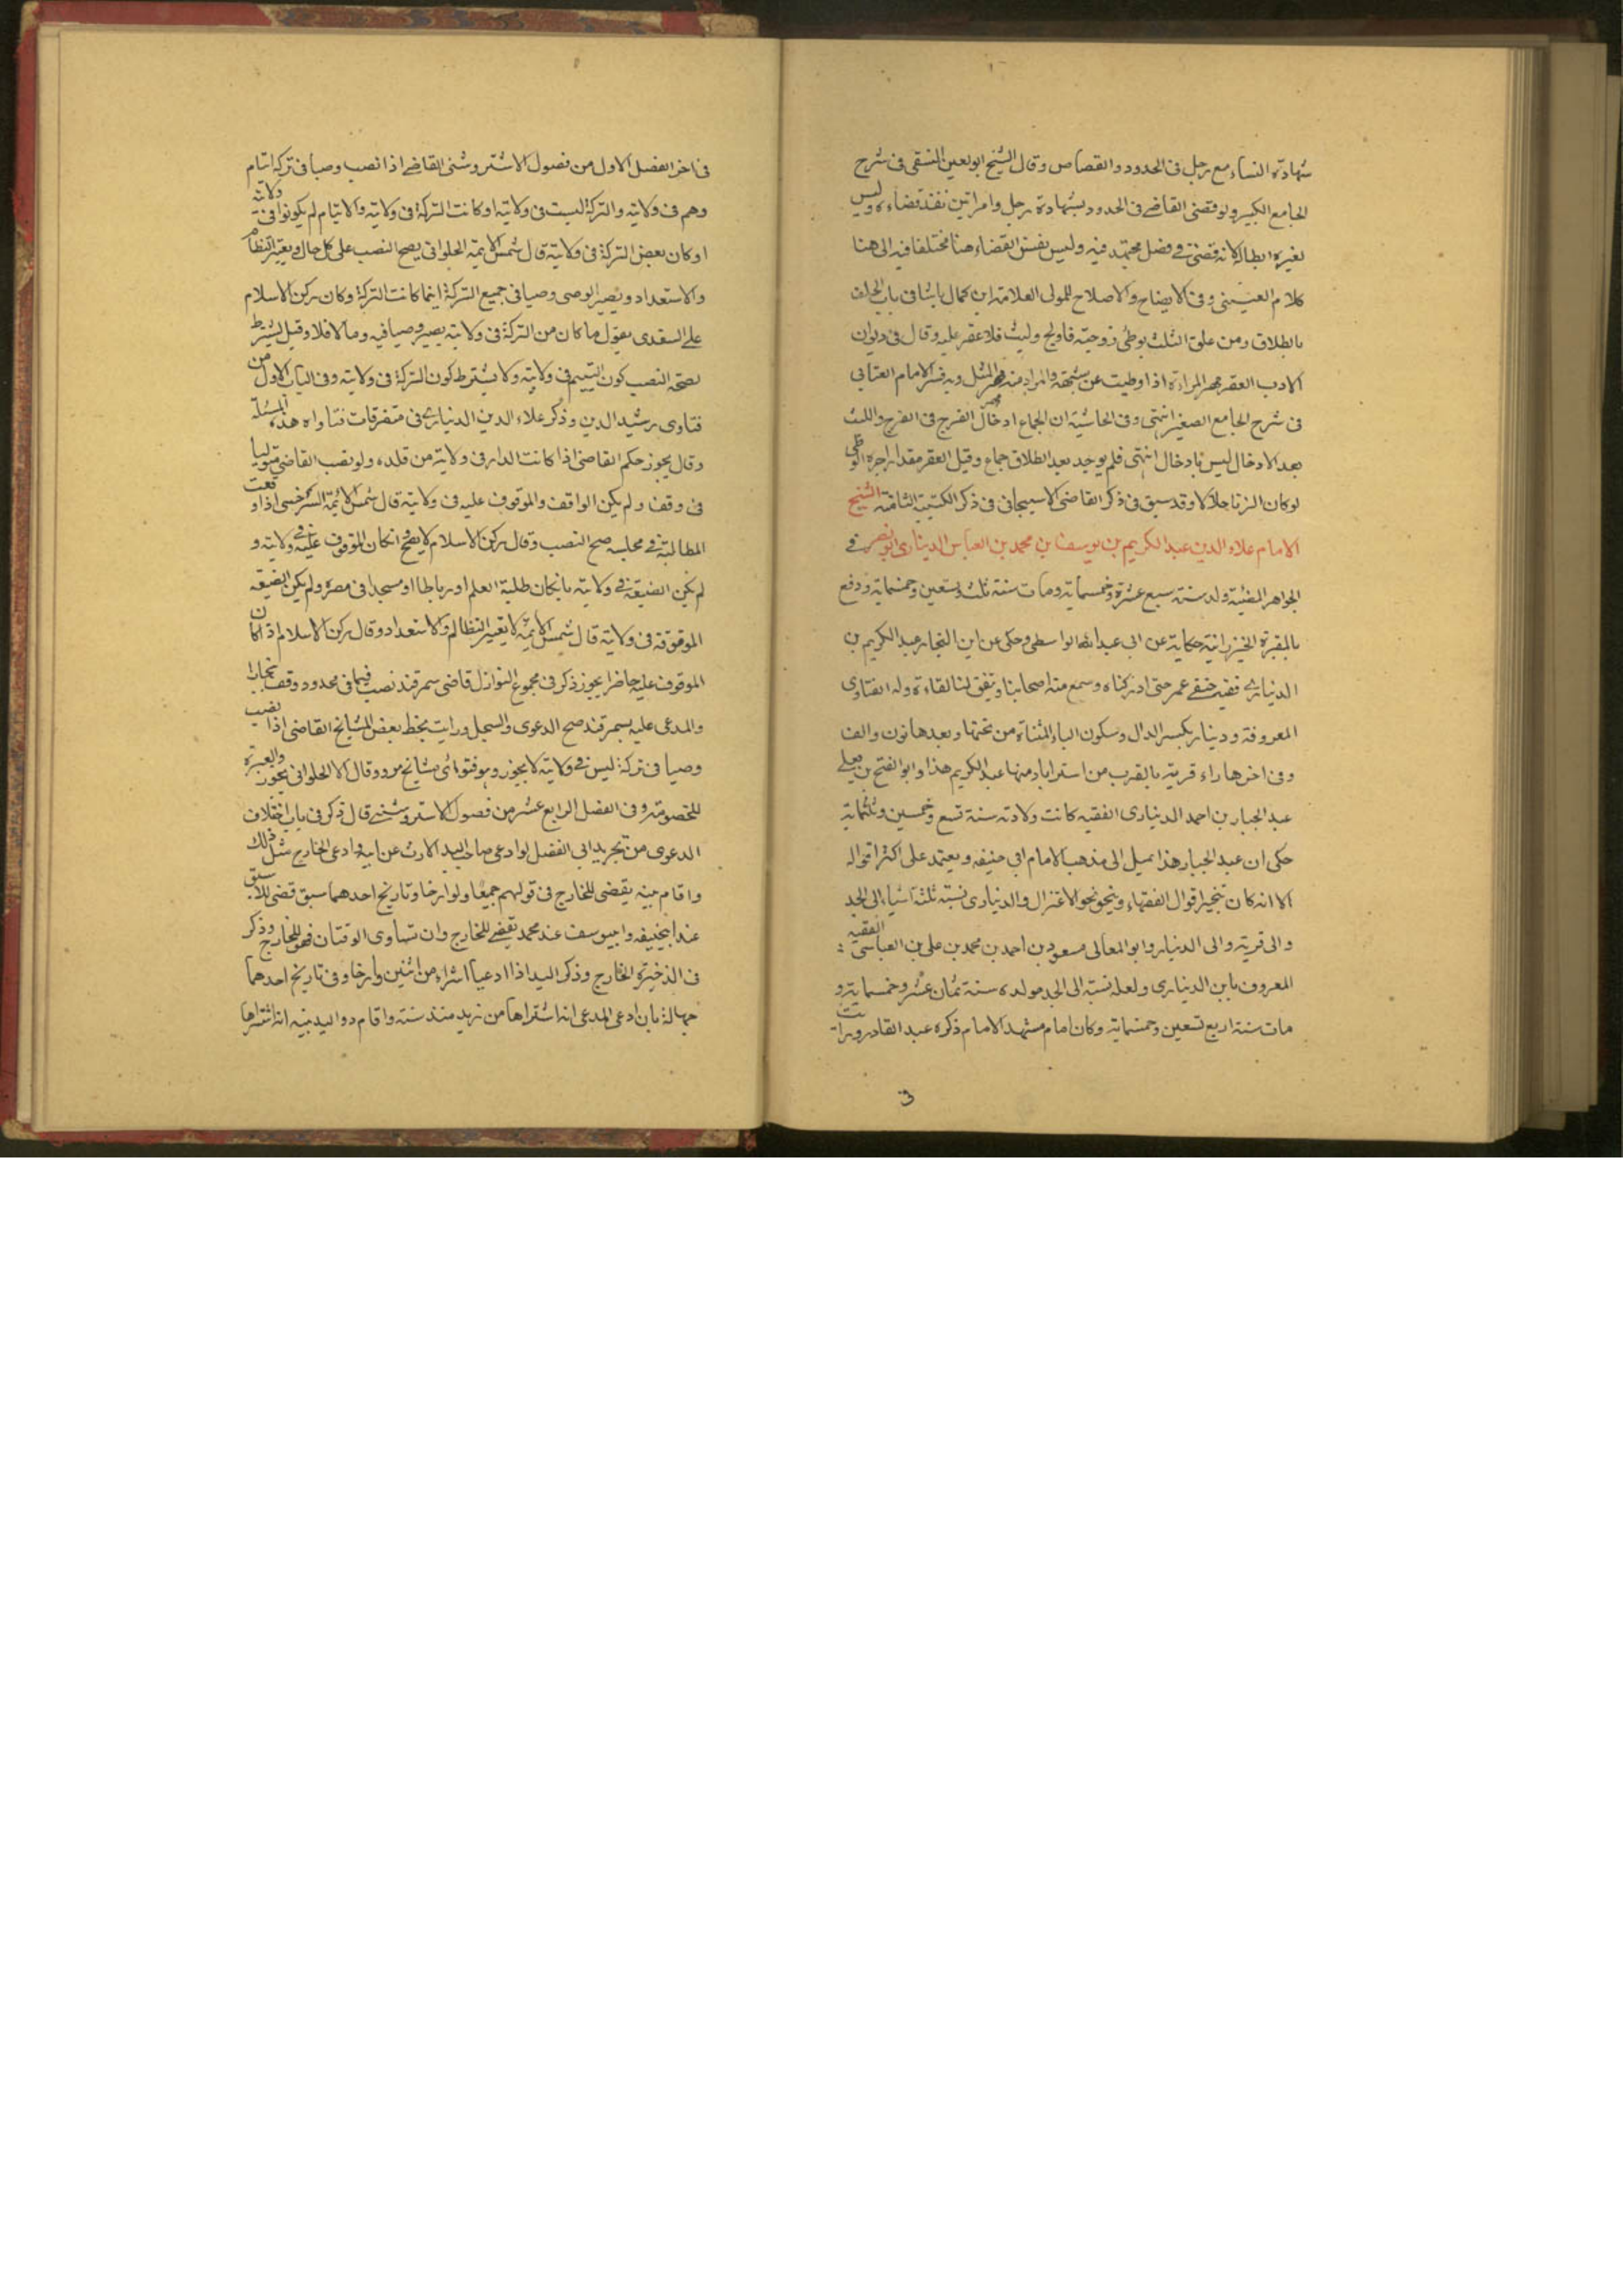 شهادة النساء مع رجل فى الحدود والقصاص وقال الشيخ ابو المعين النسفى فى شرح
الجامع الكبير ولو قضى القاضى فى الحدود بشهادة رجل وامراتين نفذ قضاءه وليس
لغيره ابطاله لانه قضى فى فصل مجتهد فيه وليس نفس القضاء هنا مختلفا فيه الى هنا
كلام العينى وفى الايضاح والاصلاح للمولى العلامة ابن كمال باشا فى باب الحلف
بالطلاق ومن علق الثلث بوطئ زوجته فاولج ولبث فلا عقر عليه وقال فى ديوان
الادب العقر مهر المراءة اذا وطيت عن شبهة والمراد منه مهر المثل وبه فسر الامام العتابى
فى شرح الجامع الصغير انتهى وفى الحاشية ان الجماع ادخال الفرج فى الفرج واللبث
بعد الادخال ليس بادخال انتهى فلم يوجد بعد الطلاق جماع وقيل العقر مقدار اجرة الوطى
لو كان الزنا حلالا وقد سبق فى ذكر القاضى الاسبيجابى فى ذكر الكتيبة الثامنة الشيخ
الامام علاء الدين عبد الكريم بن يوسف بن محمد بن العباس الدينارى ابو نصر فى
الجواهر المضئية ولد سنة سبع عشرة وخمسماية ومات سنة ثلث وتسعين وخمسماية ودفع
بالمقبرة الخيزرانية حكاية عن ابى عبد الله الواسطى وحكى عن ابن النجار عبد الكريم بن
الدينارى فقيه حنفى عمر حتى ادركناه وسمع منه اصحابنا ويتفق لنا لقاءة وله الفتاوى
المعروفة ودينار بكسر الدال وسكون الياء المثناة من تحتها وبعدها نون والف
وفى اخرها راء قرية بالقرب من استراباد منها عبد الكريم هذا وابو الفتح بن على
عبد الجبار بن احمد الدينارى الفقيه كانت ولادته سنة تسع وخمسين وثلثماية
حكى ان عبد الجبار هذا يميل الى مذهب الامام ابى حنيفه ويعتمد على اكثر اقواله
الا انه كان يتخير اقوال الفقهاء وينحو نحو الاعتزال والدينارى نسبة ثلثة اشياء الى الجد
والى قرية والى الدينار وابو المعالى مسعود بن احمد بن محمد بن على بن العباسى الفقيه
المعروف بابن الدينارى ولعله نسبة الى الجد مولده سنة ثمان عشر وخمسماية و
مات سنة اربع تسعين وخمسماية وكان امام مشهد الامام ذكره عبد القادر ورايت
فى اخر الفصل الاول من فصول الاستروشنى القاضى اذا نصب وصيا فى تركة ايتام
وهم فى ولايته والتركة ليست فى ولايته او كانت التركة فى ولايته والايتام لم يكونوا فى ولايته
او كان بعض التركة فى ولايته قال شمس الايمة الحلوانى يصح النصب على كل حال ويعتبر التظالم
والاستعداد ويصير الوصى وصيا فى جميع التركة اينما كانت التركة وكان ركن الاسلام
على السغدى يقول ما كان من التركة فى ولايته يصير وصيا فيه وما لا فلا وقيل يشترط
لصحة النصب كون اليتيم فى ولايته ولا يشترط كون التركة فى ولايته وفى الباب الاول من
فتاوى رشيد الدين وذكر علاء الدين الدينارى فى متفرقات فتاواه هذه المسئلة
وقال يجوز حكم القاضى اذا كانت الدار فى ولاية من قلده ولو نصب القاضى متوليا
فى وقف ولم يكن الواقف والموقوف عليه فى ولايته قال شمس الايمة السرخسى اذا وقعت
المطالبة فى مجلسه صح النصب وقال ركن الاسلام لا يصح ان كان الموقوف عليه فى ولايته و
لم يكن الضيعة فى ولايته بان كان طلبة العلم او رباطا او مسجدا فى مصره ولم يكن الضيعة
الموقوفة فى ولايته قال شمس الايمة لا يعتبر التظالم والاستعداد وقال ركن الاسلام اذا كان
الموقوف عليه حاضرا يجوز ذكر فى مجموع النوازل قاضى سمرقند نصب قيما فى محدود وقف بخارا
والمدعى عليه بسمرقند صح الدعوى والسجل ورايت بخط بعض المشايخ القاضى اذا نصب
وصيا فى تركة ليس فى ولايته لا يجوز وهو فتوى مشايخ مرو وقال الا الحلوانى يجوز والعبرة
للخصومة وفى الفصل الرابع عشر من فصول الاستروشنى قال ذكر فى باب اختلاف
الدعوى من تجريد ابى الفضل لو ادعى صاحب اليد الارث عن ابيه وادعى الخارج مثل ذلك
واقام بينه يقضى للخارج فى قولهم جميعا ولو ارخا وتاريخ احدهما سبق قضى للاسبق
عند ابيحنيفه وابيوسف عند محمد يقضى للخارج وان تساوى الوقتان فهو للخارج وذكر
فى الذخيرة الخارج وذكر اليد اذا ادعيا الشراء من اثنين وارخا وفى تاريخ احدهما
جهالة بان ادعى المدعى انه اشتراها من زيد منذ سنة واقام ذو اليد بينه انه اشتراها